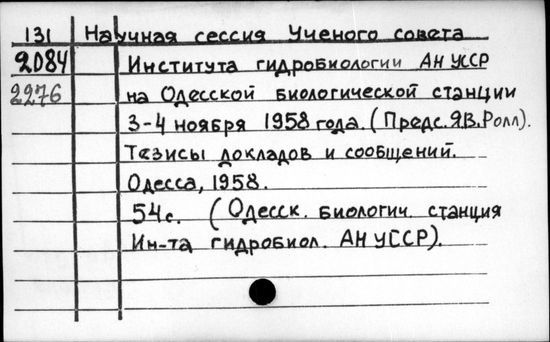 131 Научная сессия Ученого совета
2084 Института гидробиологии АН УССР
2276 на Одесской биологической станции
3-4 ноября 1958 года. (Предс. Я.В. Ролл).
Тезисы докладов и сообщений.
Одесса, 1958.
54с. (Одесск. биологич. станция
Ин-та гидробиол. АН УССР).